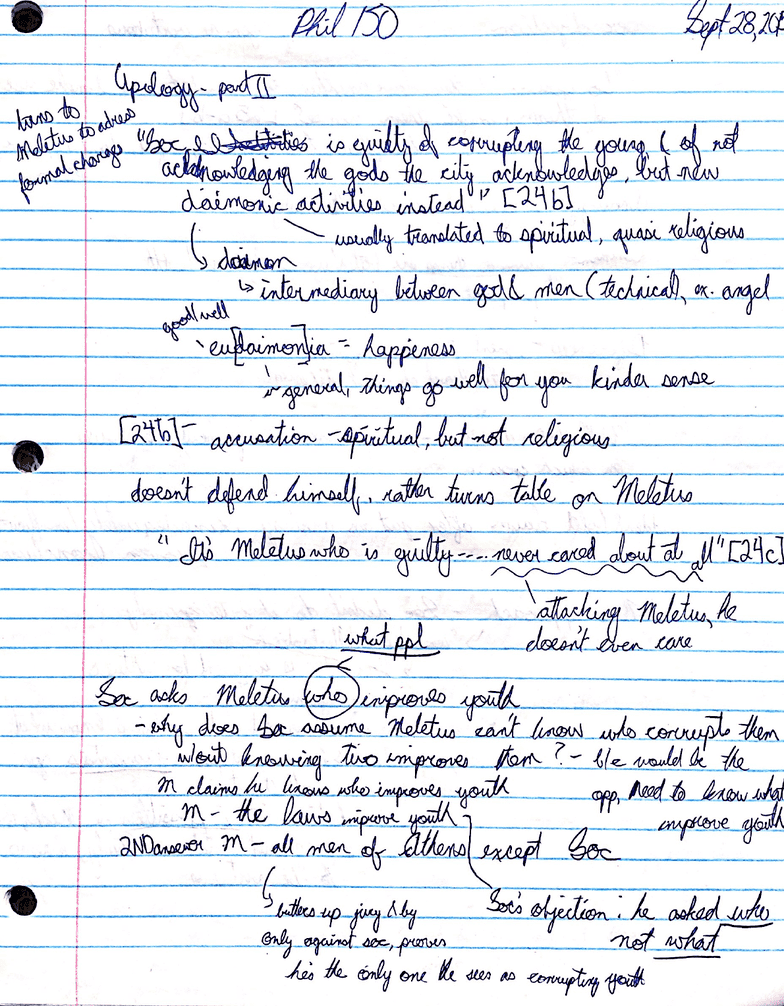 Phil 150
Sept 28, 20
Apology - part II
turns to
Meletus to adress
formal charges
"Soc is guilty of corrupting the young & of not
acknowledging the gods the city acknowledges, but new
daimonic activities instead" [24b]
usually translated to spiritual, quasi religious
↳ daimon
↳ intermediary between gods & men (technical), ex. angel
good/well
eu[daimon]ia = happeness
in general, things go well for you kinda sense
[24b] - accusation - spiritual, but not religious
doesn't defend himself, rather turns table on Meletus
"It's Meletus who is guilty .... never cared about at all" [24c]
attacking Meletus, he
doesn't even care
what ppl
Soc asks Meletus who improves youth
- why does Soc assume Meletus can't know who corrupts them
w/out knowing who improves them? - b/c would be the
opp, need to know what
improve youth
M claims he knows who improves youth
M - the laws improve youth
2ND answer M - all men of Athens except Soc
↳ butters up jury & by
only against soc, proves
he's the only one he sees as corrupting youth
Soc's objection: he asked who
not what